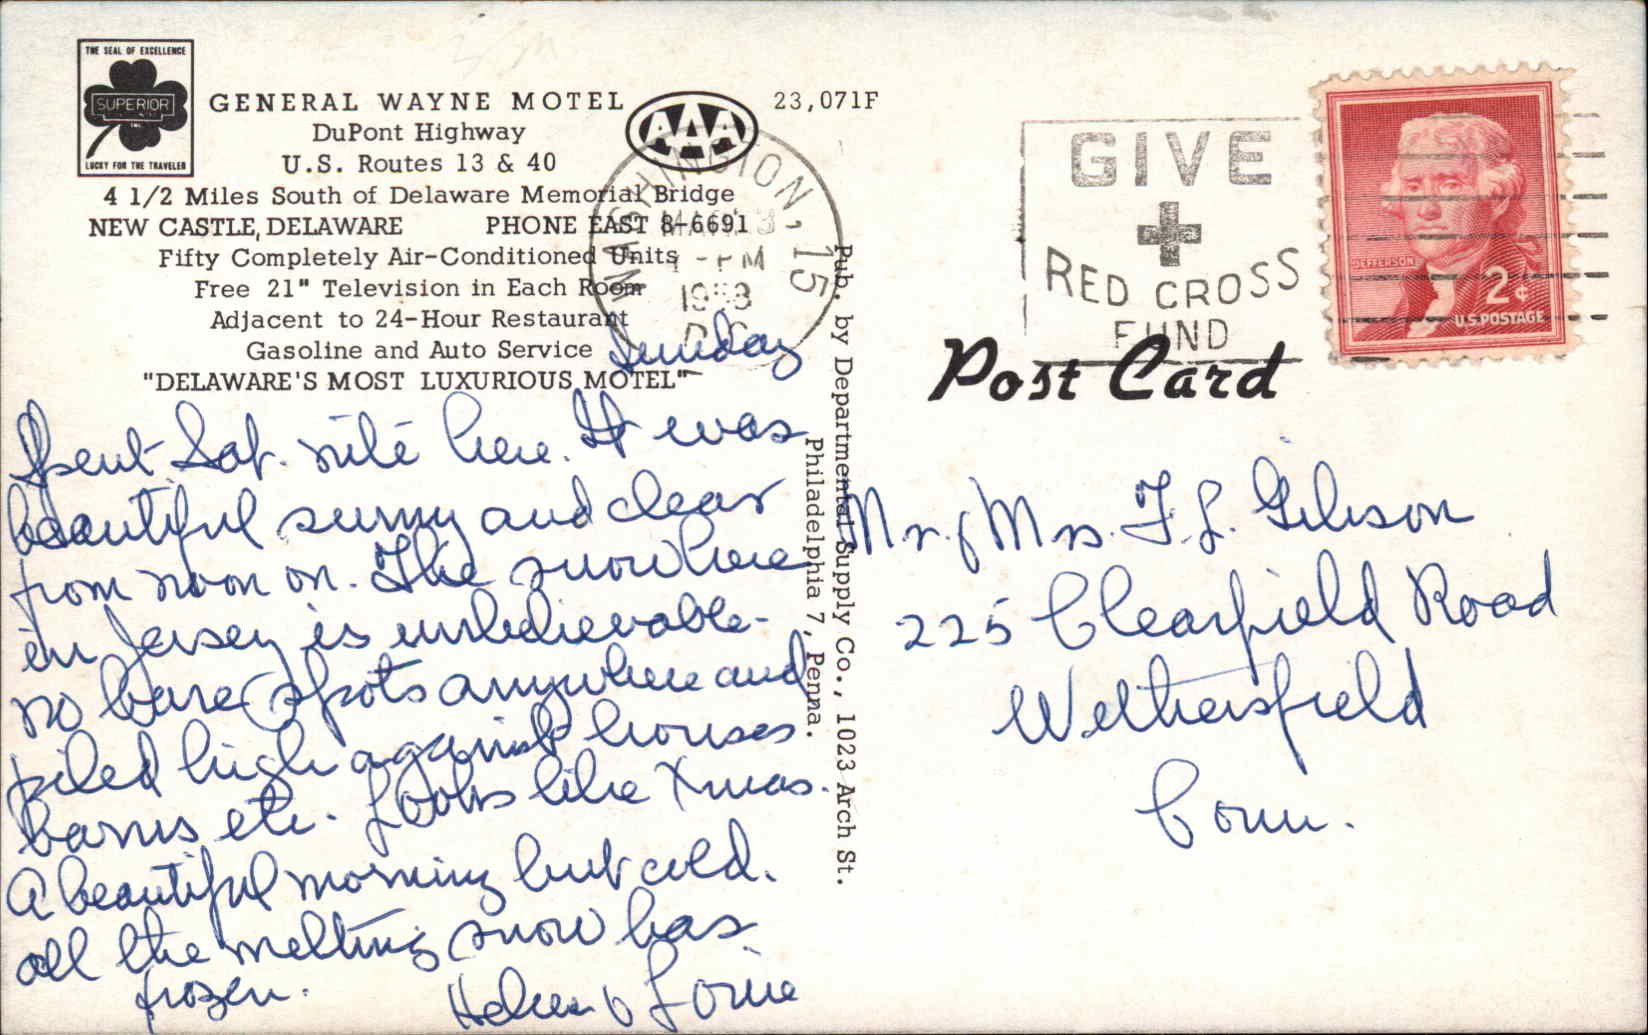 THE SEAL OF EXCELLENCE
SUPERIOR
INC.
LUCKY FOR THE TRAVELER
GENERAL WAYNE MOTEL
DuPont Highway
U.S. Routes 13 & 40
4 1/2 Miles South of Delaware Memorial Bridge
NEW CASTLE, DELAWARE PHONE EAST 8-6691
Fifty Completely Air-Conditioned Units
Free 21" Television in Each Room
Adjacent to 24-Hour Restaurant
Gasoline and Auto Service
"DELAWARE'S MOST LUXURIOUS MOTEL"
AAA
23,071F
WASHINGTON, 15
PM
D.C.
Sunday
Spent Sat. nite here. It was
beautiful sunny and clear
from noon on. The snow here
in Jersey is unbelievable -
no bare spots anywhere and
piled high against houses
barns etc. Looks like Xmas.
A beautiful morning but cold.
all the melting snow has
frozen.
Helen &
Pub. by Departmental Supply Co., 1023 Arch St.
Philadelphia 7, Penna.
GIVE
RED CROSS
FUND
JEFFERSON
2¢
U.S. POSTAGE
Post Card
Mr. & Mrs. F. L. Gibson
225 Clearfield Road
Wethersfield
Conn.